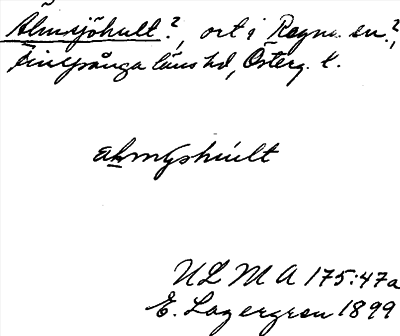 Älmsjöhult?, ort i Regna sn.?,
Finspånga läns hd, Österg. l.
ULMA 175:47a
E. Lagergren 1899